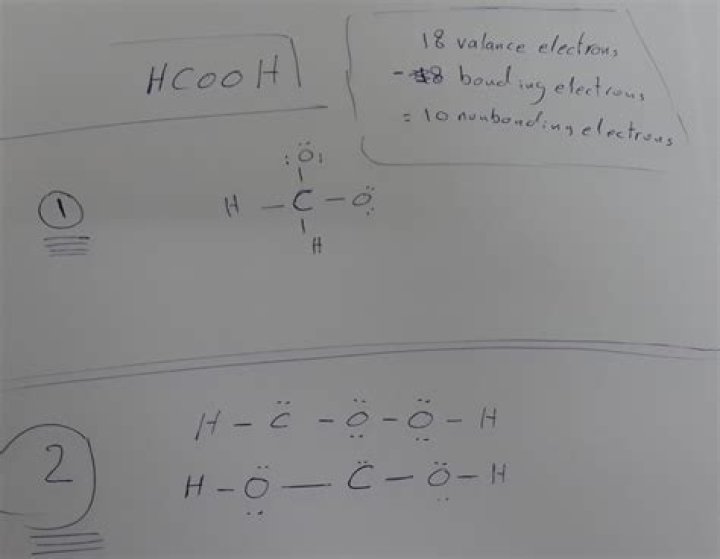 HCOOH
18 valance electrons
- 8 bonding electrons
= 10 nonbonding electrons
1
:Ö:
H - C - Ö
H
2
H - C̈ - Ö - Ö - H
H - Ö - C̈ - Ö - H